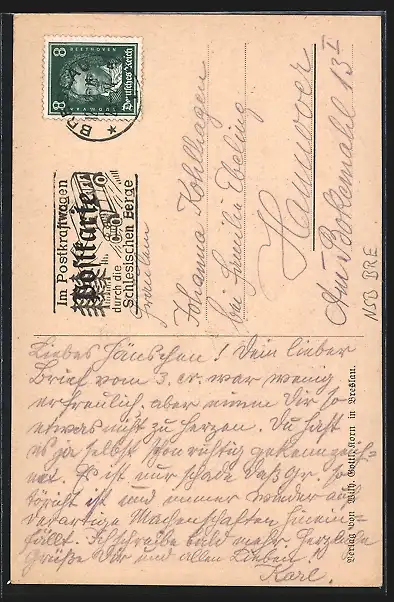 8 BEETHOVEN 8
Deutsches Reich
BRESLAU
Im Postkraftwagen
durch die
Schlesischen Berge
Postkarte
Fräulein
Johanna Kohlhagen
bei Familie Ebeling
Hannover
Am Bokemahl 13 I
NSB BRE
Liebes Hänschen! Dein lieber
Brief vom 3. cr. war wenig
erfreulich, aber nimm Dir so
etwas nicht zu Herzen. Du hast
es ja selbst schon richtig gekennzeich-
net. Es ist nur schade daß Gr.
töricht ist und immer wieder auf
derartige Machenschaften hinein-
fällt. Ich schreibe bald mehr. Herzliche
Grüße Dir und allen Lieben!
Karl.
Verlag von Wilh. Gottl. Korn in Breslau.